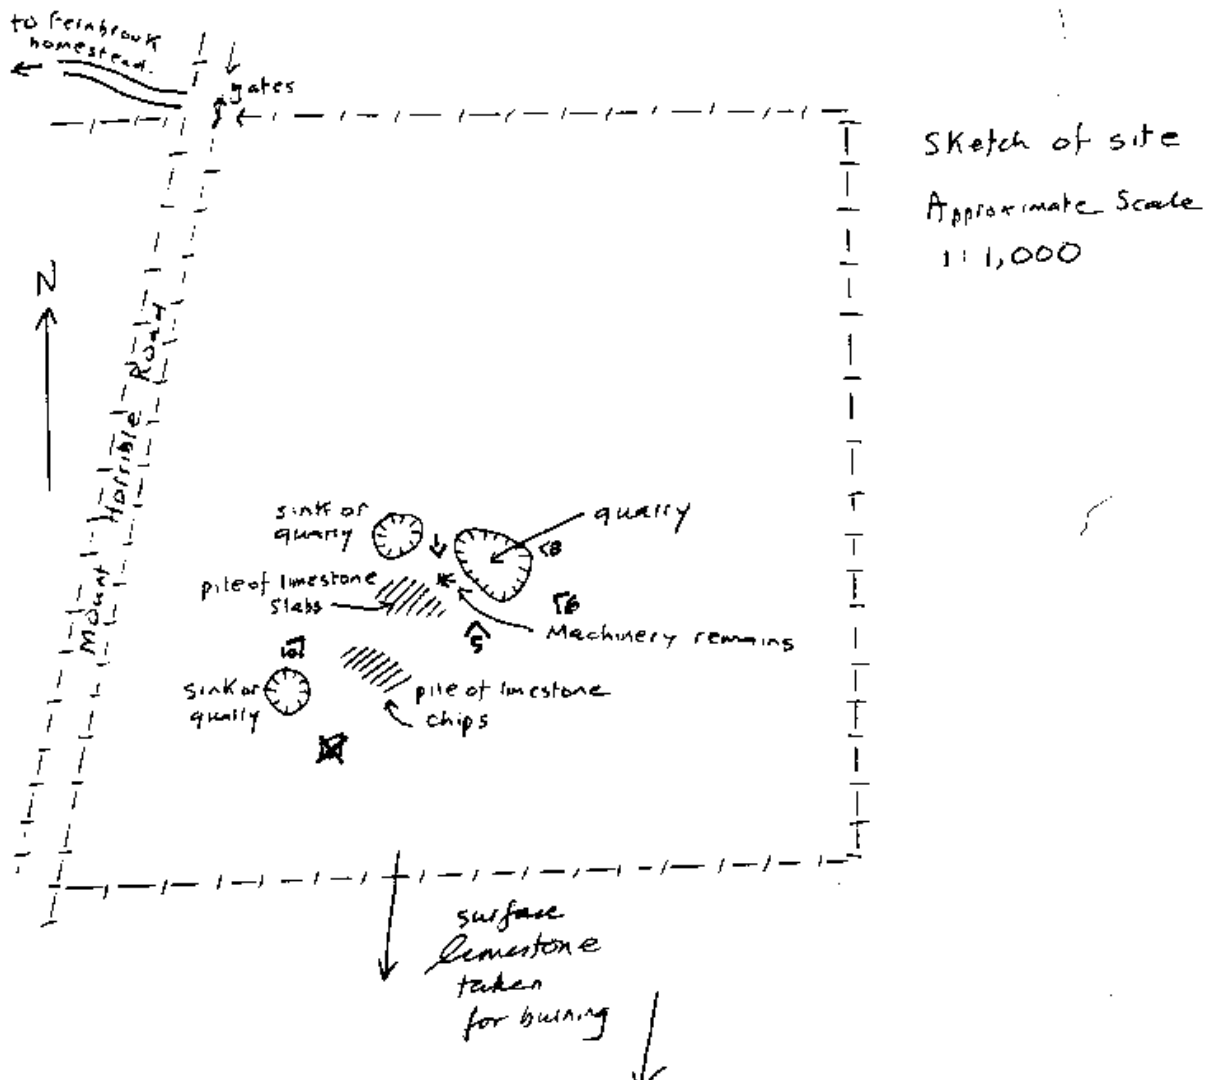 to Fernbrook
homestead.
gates
Sketch of site
Approximate Scale
1:1,000
N
Mount Horrible Road
sink or
quarry
quarry
8
pile of limestone
slabs
6
Machinery remains
5
10
sink or
quarry
pile of limestone
chips
surface
limestone
taken
for burning